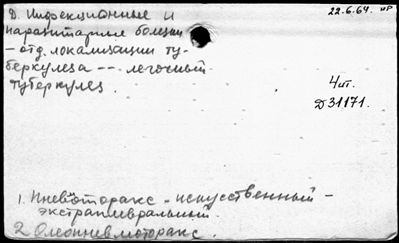 22.6.64. нР
8. Инфекционные и
паразитарные болезни
– отд. локализации ту-
беркулеза --- легочный
туберкулез.
4 ит.
Д31171.
1. Пневмоторакс – искуственный –
экстраплевральный.
2. Олеопневмоторакс.